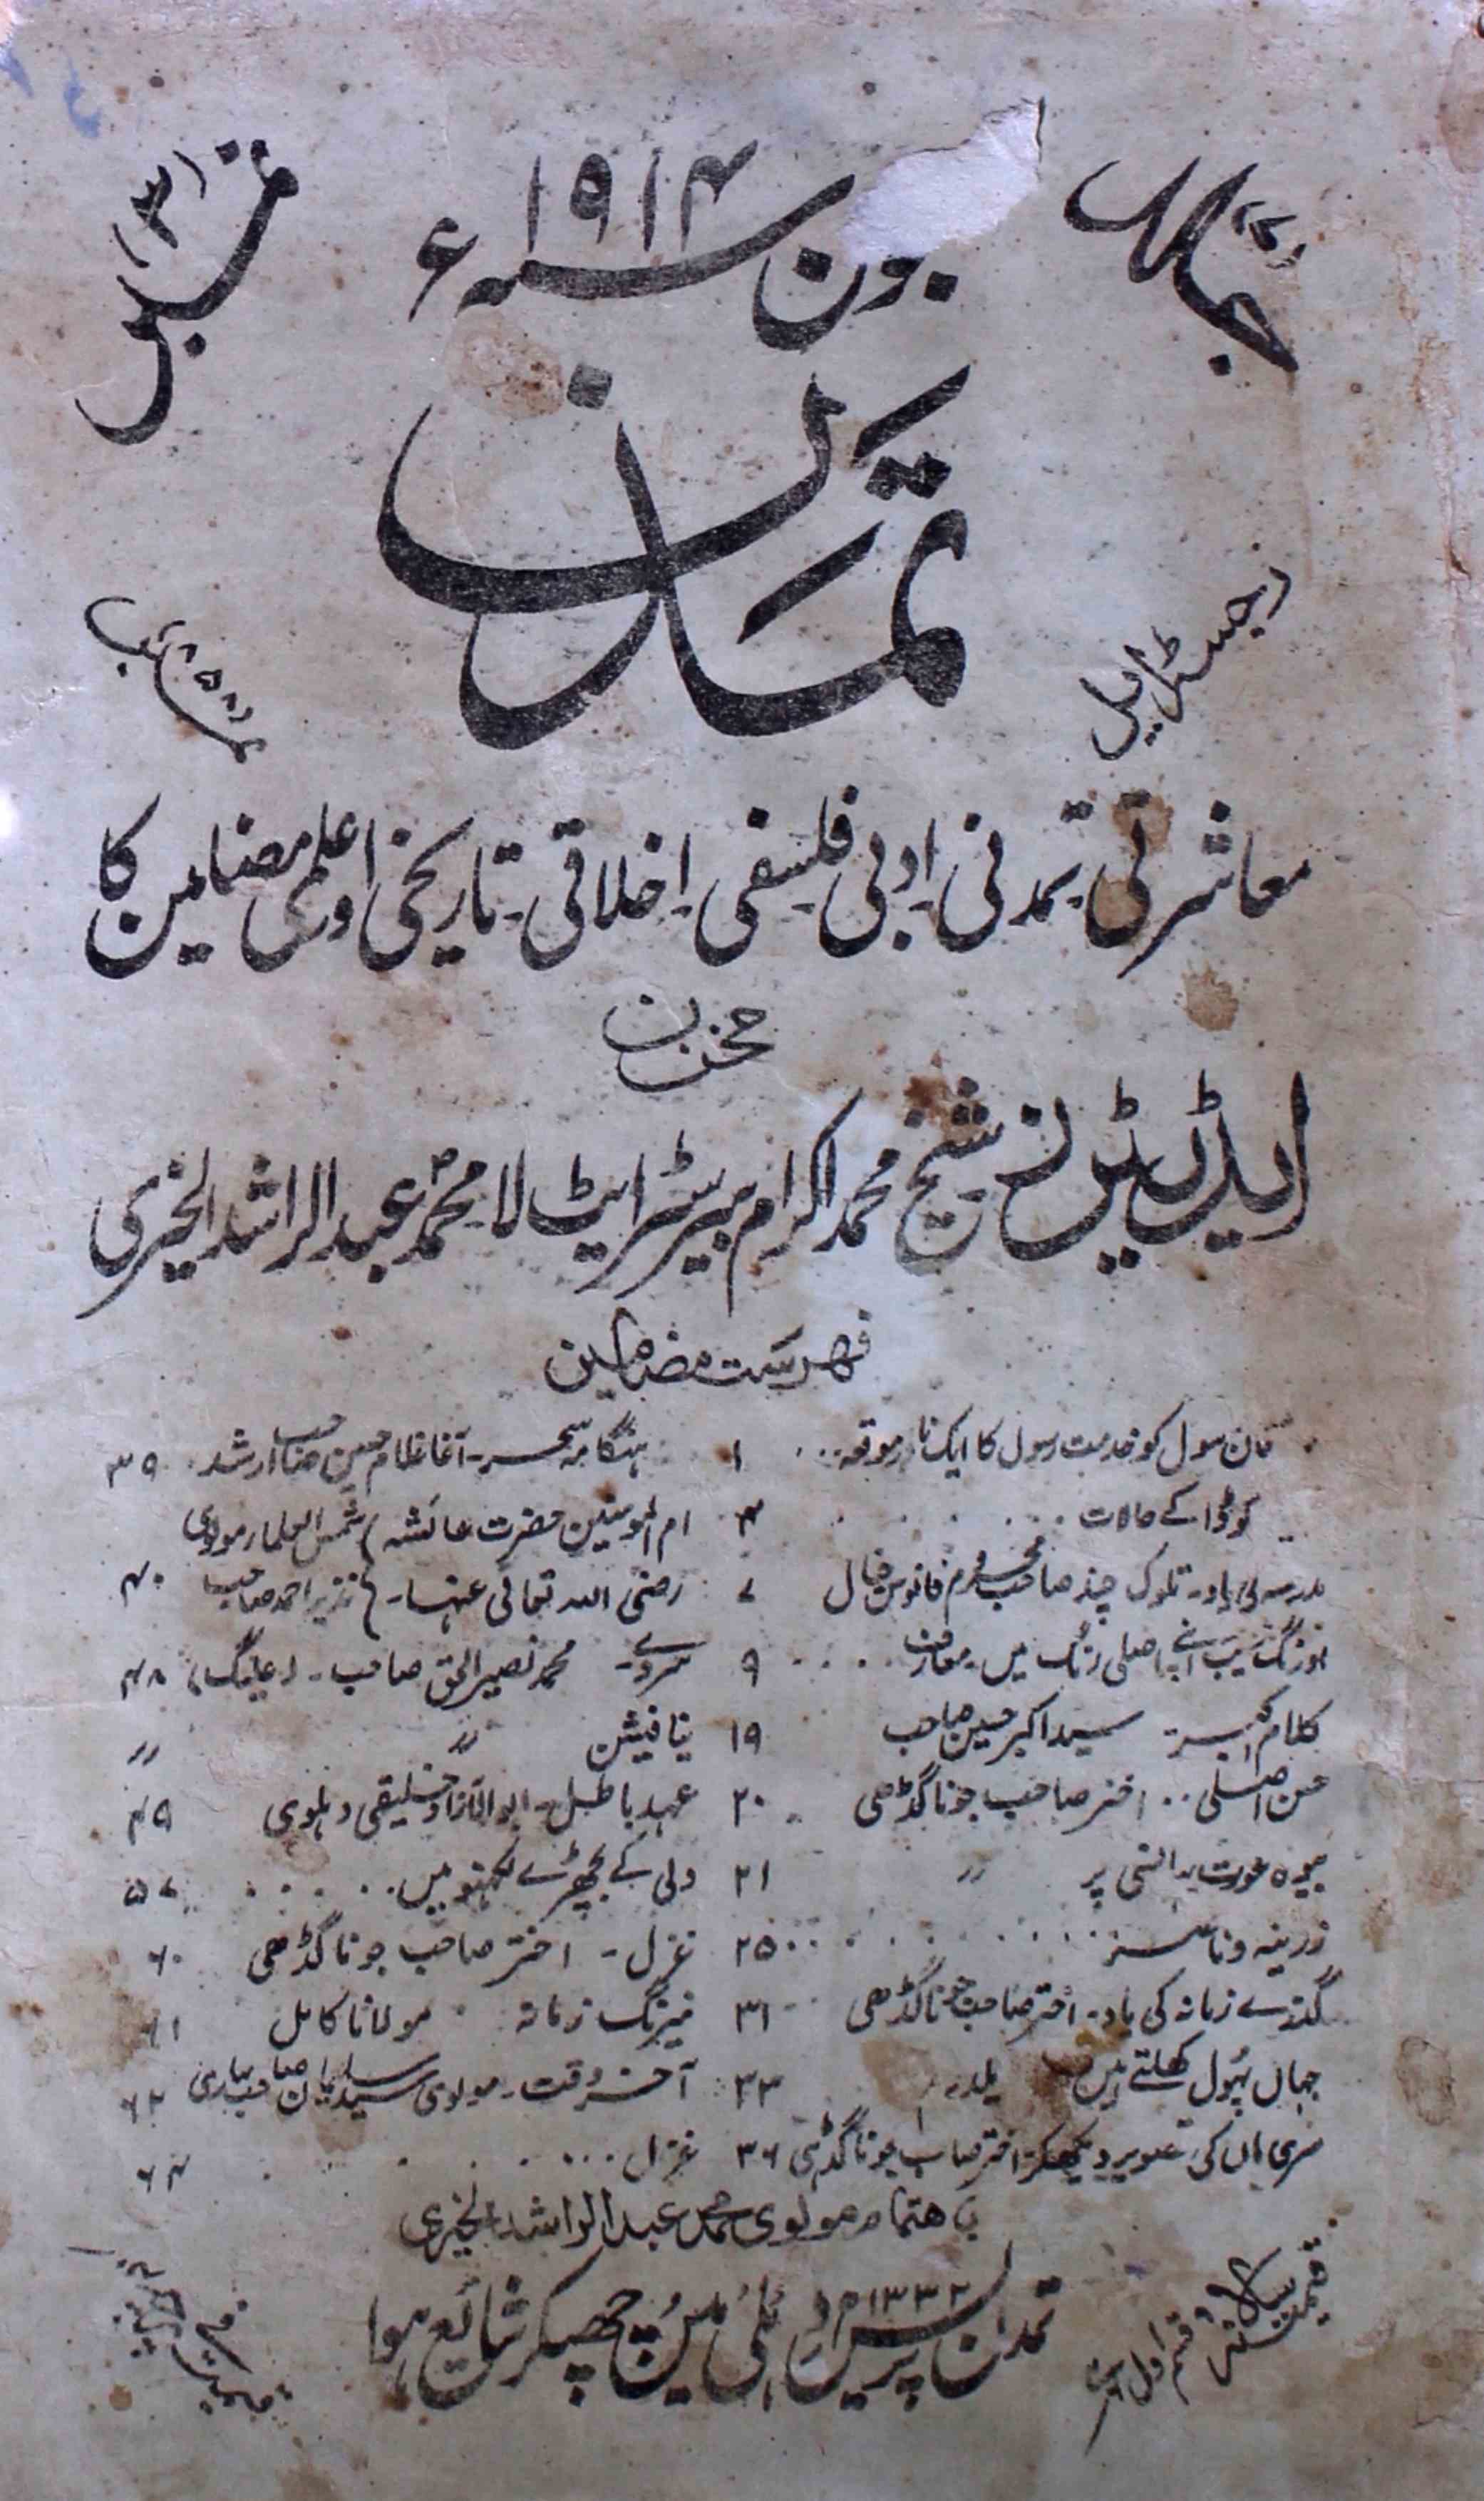 جلد
جون سنہ ۱۹۱۴ء
نمبر (۳)
تمدّن
رجسٹرڈ ایل
نمبر
معاشرتی تمدنی ادبی فلسفی اخلاقی۔ تاریخی اور علمی مضامین کا
مخزن
ایڈیٹرس شیخ محمد اکرام بیرسٹر ایٹ لا۔ محمدؐ عبد الراشد الخیری
فہرست مضامین
کو خدمت رسول کا ایک نادر موقعہ... ۱
کے حالات ..... ۴
تلوک چند صاحب محروم فانوس خیال ۷
اورنگ زیب اپنے اصلی رنگ میں۔ معارف .... ۹
کلام اکبر۔ سید اکبر حسین صاحب ۱۹
حسن اصلی .. اختر صاحب جوناگڈھی ۲۰
بیوہ عورت پر 〃 ۲۱
زرینہ و ........ ۲۵
گذرے زمانہ کی یاد۔ اختر صاحب جوناگڈھی ۳۱
جہاں پھول کھلتے ہیں یلدرم ۳۳
کی تصویر دیکھکر۔ اختر صاحب جوناگڈہی ۳۶
ہنگامہ سحر۔ آغا غلام حسین صاحب ارشد ۳۹
ام المومنین حضرت عائشہ } شمس العلماء مولوی
رضی اللہ تعالی عنہا۔ } نذیر احمد صاحب ۴۰
محمد نصیر الحق صاحب۔ (علیگ) ۴۸
نیا فیشن 〃 〃
عہد باطل۔ ابو الآزاد خلیقی دہلوی ۴۹
دلی کے بچھڑے لکہنو میں ..... ۵۷
غزل۔ اختر صاحب جوناگڈھی ۶۰
نیرنگ زمانہ مولانا کامل ۶۱
آخر وقت۔ مولوی سید صاحب بہاری ۶۲
غزل ..... ۶۴
باہتمام مولوی محمد عبد الراشد الخیری
تمدن پریس دہلی میں چھپکر شائع ہوا
۱۳۳۲
قیمت سالانہ قسم اول
قیمت فی پرچہ